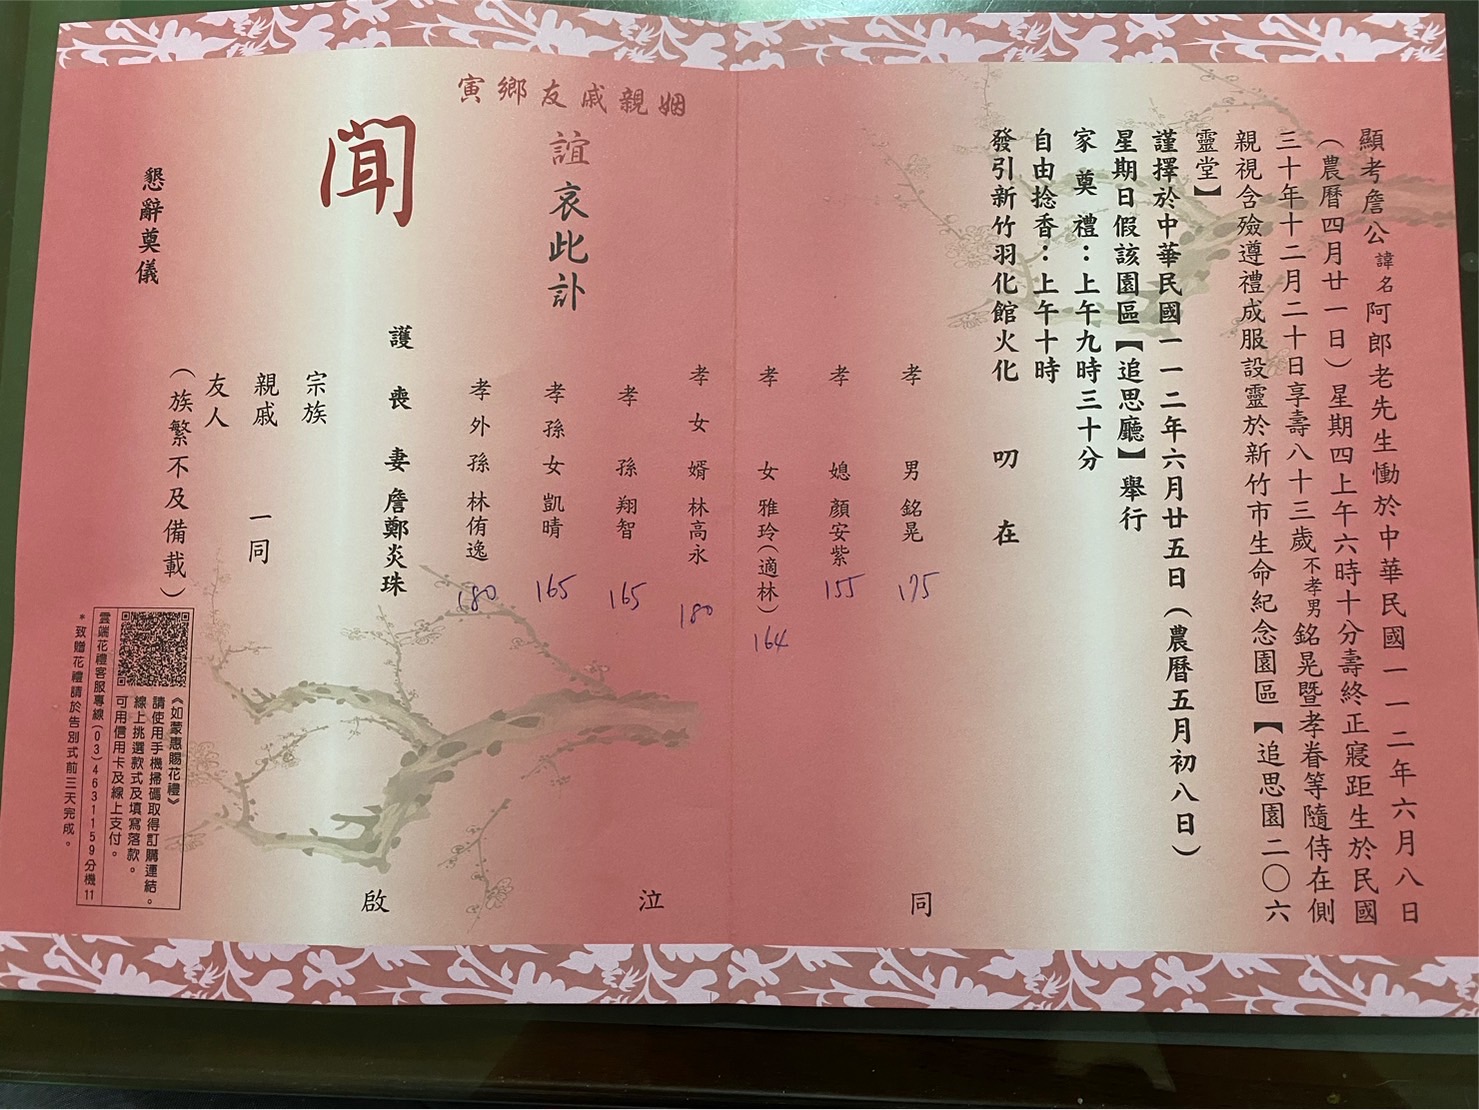 顯考詹公諱名阿郎老先生慟於中華民國一一二年六月八日
（農曆四月廿一日）星期四上午六時十分壽終正寢距生於民國
三十年十二月二十日享壽八十三歲不孝男銘晃暨孝眷等隨侍在側
親視含殮遵禮成服設靈於新竹市生命紀念園區【追思園二〇六
靈堂】
謹擇於中華民國一一二年六月廿五日（農曆五月初八日）
星期日假該園區【追思廳】舉行
家奠禮：上午九時三十分
自由捻香：上午十時
發引新竹羽化館火化 叨在
孝男 銘晃 175
同
孝媳 顏安紫 155
孝女 雅玲（適林） 164
孝女婿 林高永 180
泣
孝孫 翔智 165
孝孫女 凱晴 165
孝外孫 林侑逸 180
護喪妻 詹鄭炎珠
啟
姻親戚友鄉寅
誼哀此訃
聞
宗族
親戚 一同
友人
（族繁不及備載）
懇辭奠儀
《如蒙惠賜花禮》
請使用手機掃碼取得訂購連結。
線上挑選款式及填寫落款。
可用信用卡及線上支付。
雲端花禮客服專線(03)4631159分機11
*致贈花禮請於告別式前三天完成。